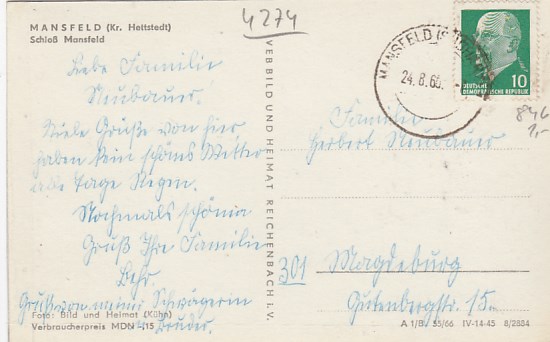 MANSFELD (Kr. Hettstedt)
Schloß Mansfeld
4274
Liebe Familie
Neubauer.
Viele Grüße von hier
haben kein schöns Wetter
alle Tage Regen.
Nochmals schönia
Gruß Ihre Familie
Behr.
Gruß von meine Schwägerin
u. Bruder.
Foto: Bild und Heimat (Kühn)
Verbraucherpreis MDN -,15
VEB BILD UND HEIMAT REICHENBACH i. V.
MANSFELD
24.8.66.
DEUTSCHE
DEMOKRATISCHE REPUBLIK
10
846
1,-
Familie
Herbert Neubauer
301 Magdeburg
Gutenbergstr. 15.
A 1/B. 55/66 IV-14-45 8/2884